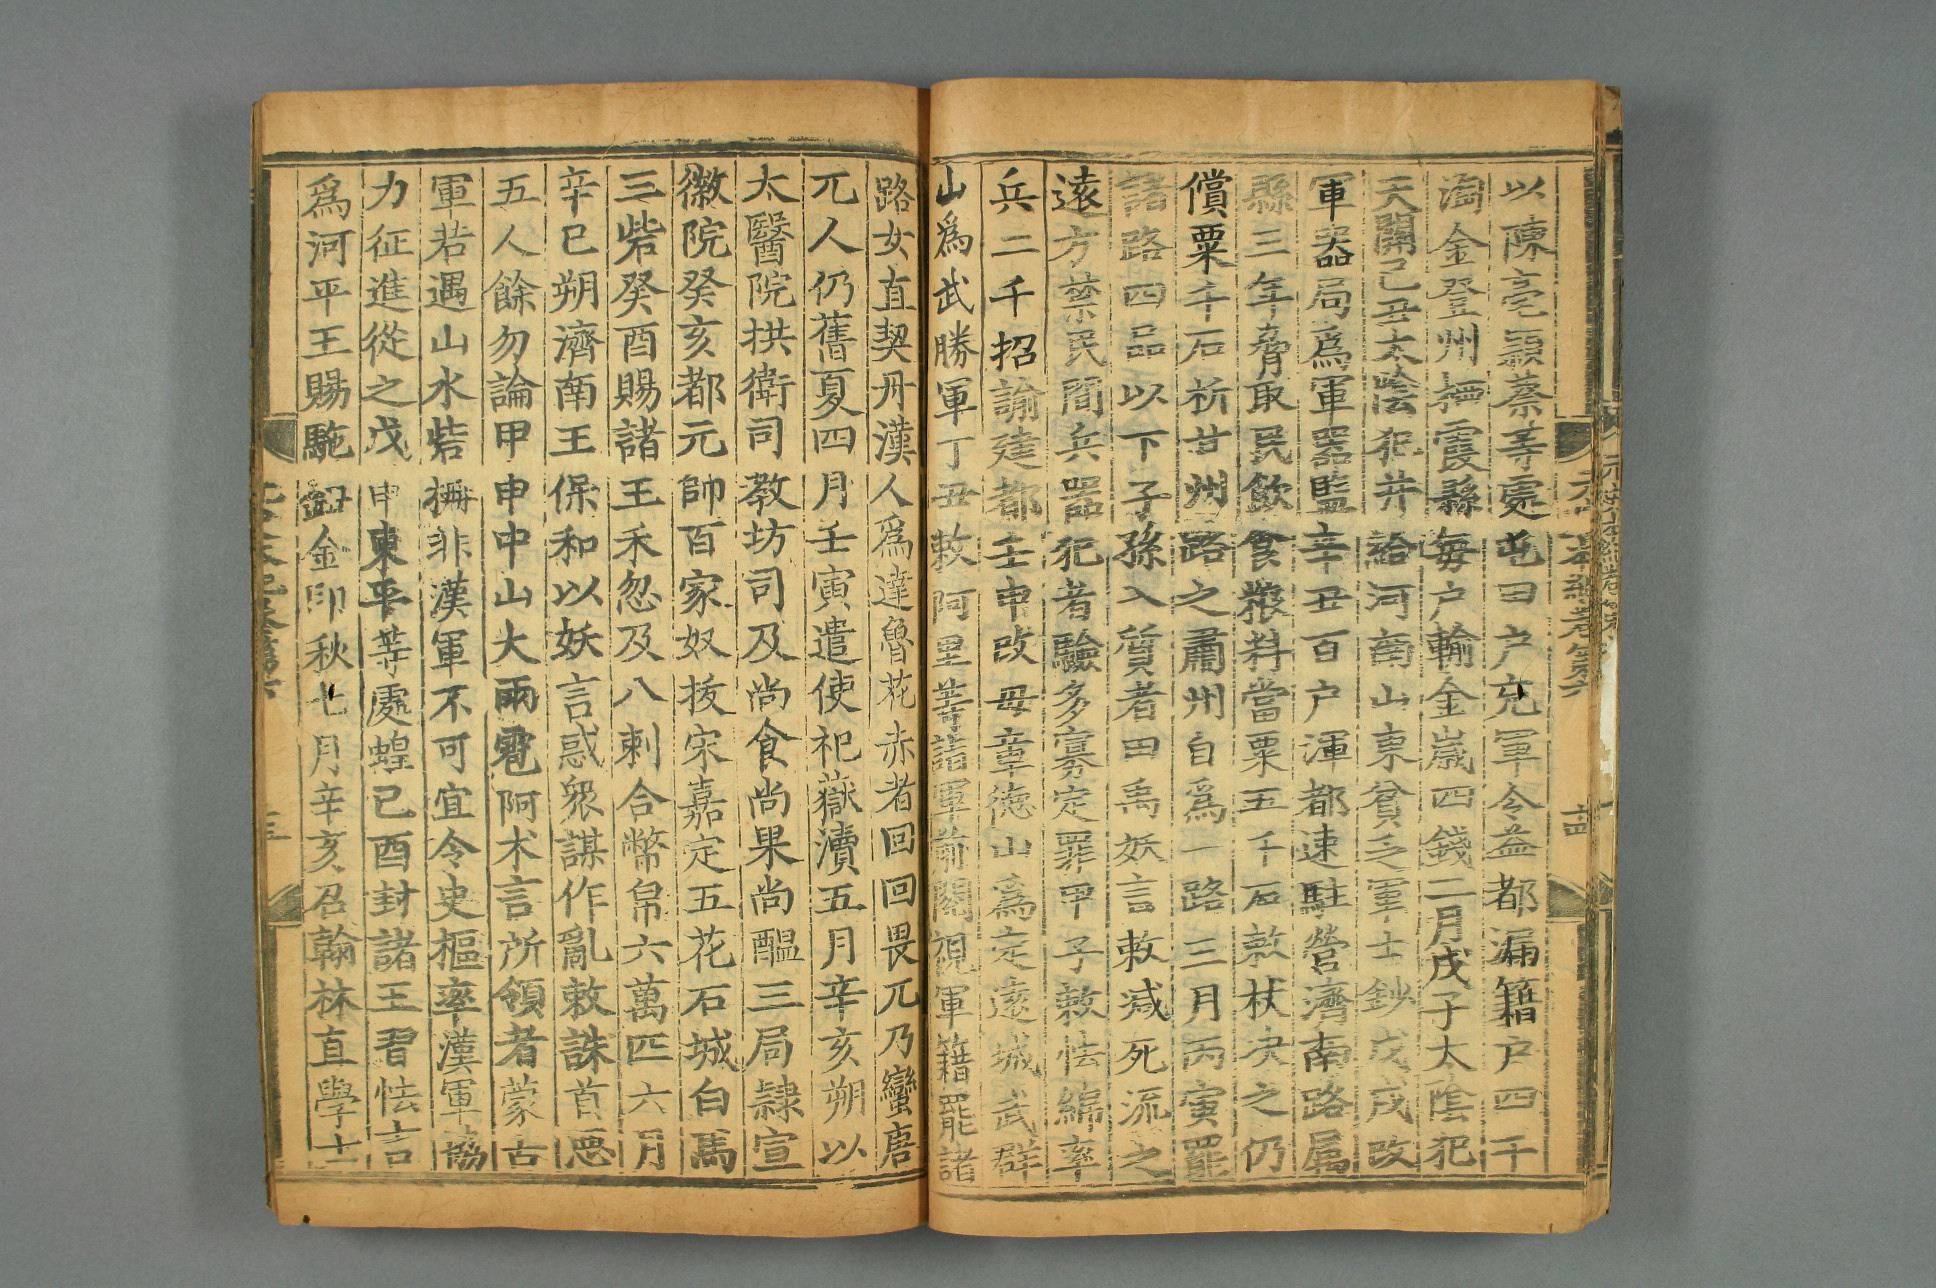 以陳亳潁蔡等處屯田戶充軍令益都漏籍戶四千
淘金登州棲霞縣每戶輸金歲四錢二月戊子太陰犯
天關己丑太陰犯井給河南山東貧乏軍士鈔戊戌改
軍器局爲軍器監辛丑百戶渾都速駐營濟南路屬
縣三年脅取民飲食粮料當粟五千石敕杖決之仍
償粟千石析甘州路之肅州自爲一路三月丙寅罷
諸路四品以下子孫入質者田禹妖言敕减死流之
遠方禁民間兵器犯者驗多寡定罪甲子敕怯綿率
兵二千招諭建都壬申改毋章德山爲定遠城武群
山爲武勝軍丁丑敕阿里等詣軍前閱視軍籍罷諸
路女直契丹漢人爲達魯花赤者回回畏兀乃蠻唐
兀人仍舊夏四月壬寅遣使祀嶽瀆五月辛亥朔以
太醫院拱衛司教坊司及尚食尚果尚醞三局隸宣
徽院癸亥都元帥百家奴拔宋嘉定五花石城白馬
三砦癸酉賜諸王禾忽及八剌合幣帛六萬匹六月
辛巳朔濟南王保和以妖言惑衆謀作亂敕誅首惡
五人餘勿論甲申中山大雨雹阿朮言所領者蒙古
軍若遇山水砦柵非漢軍不可宜令史樞率漢軍協
力征進從之戊申東平等處蝗己酉封諸王習怯吉
爲河平王賜駞鈕金印秋七月辛亥召翰林直學士